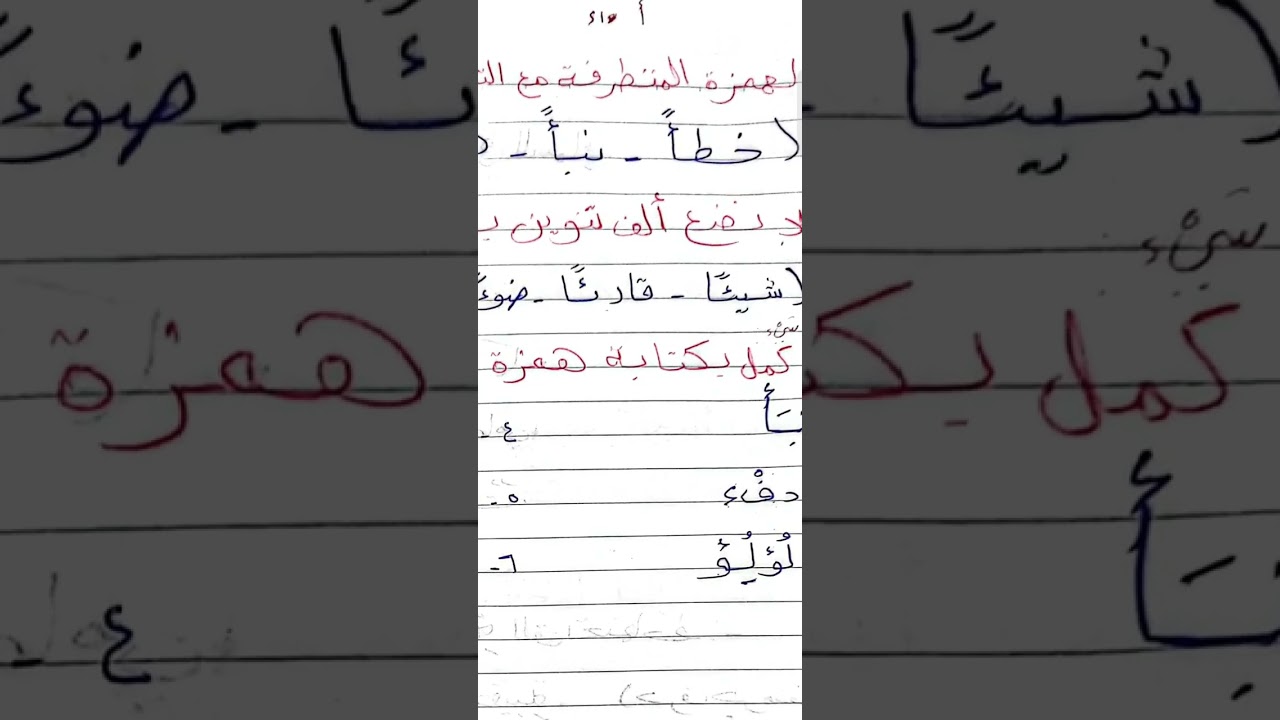 أ اء
لهمزة المتطرفة مع الت
(خطأً - نبأً -
لا نضع ألف تنوين ب
(شيئًا - قارئًا - ضوءً
شيء
كمل بكتابة همزة
بَأ
٤ -
دفْء
٥ -
لُؤلُؤ
٦ -